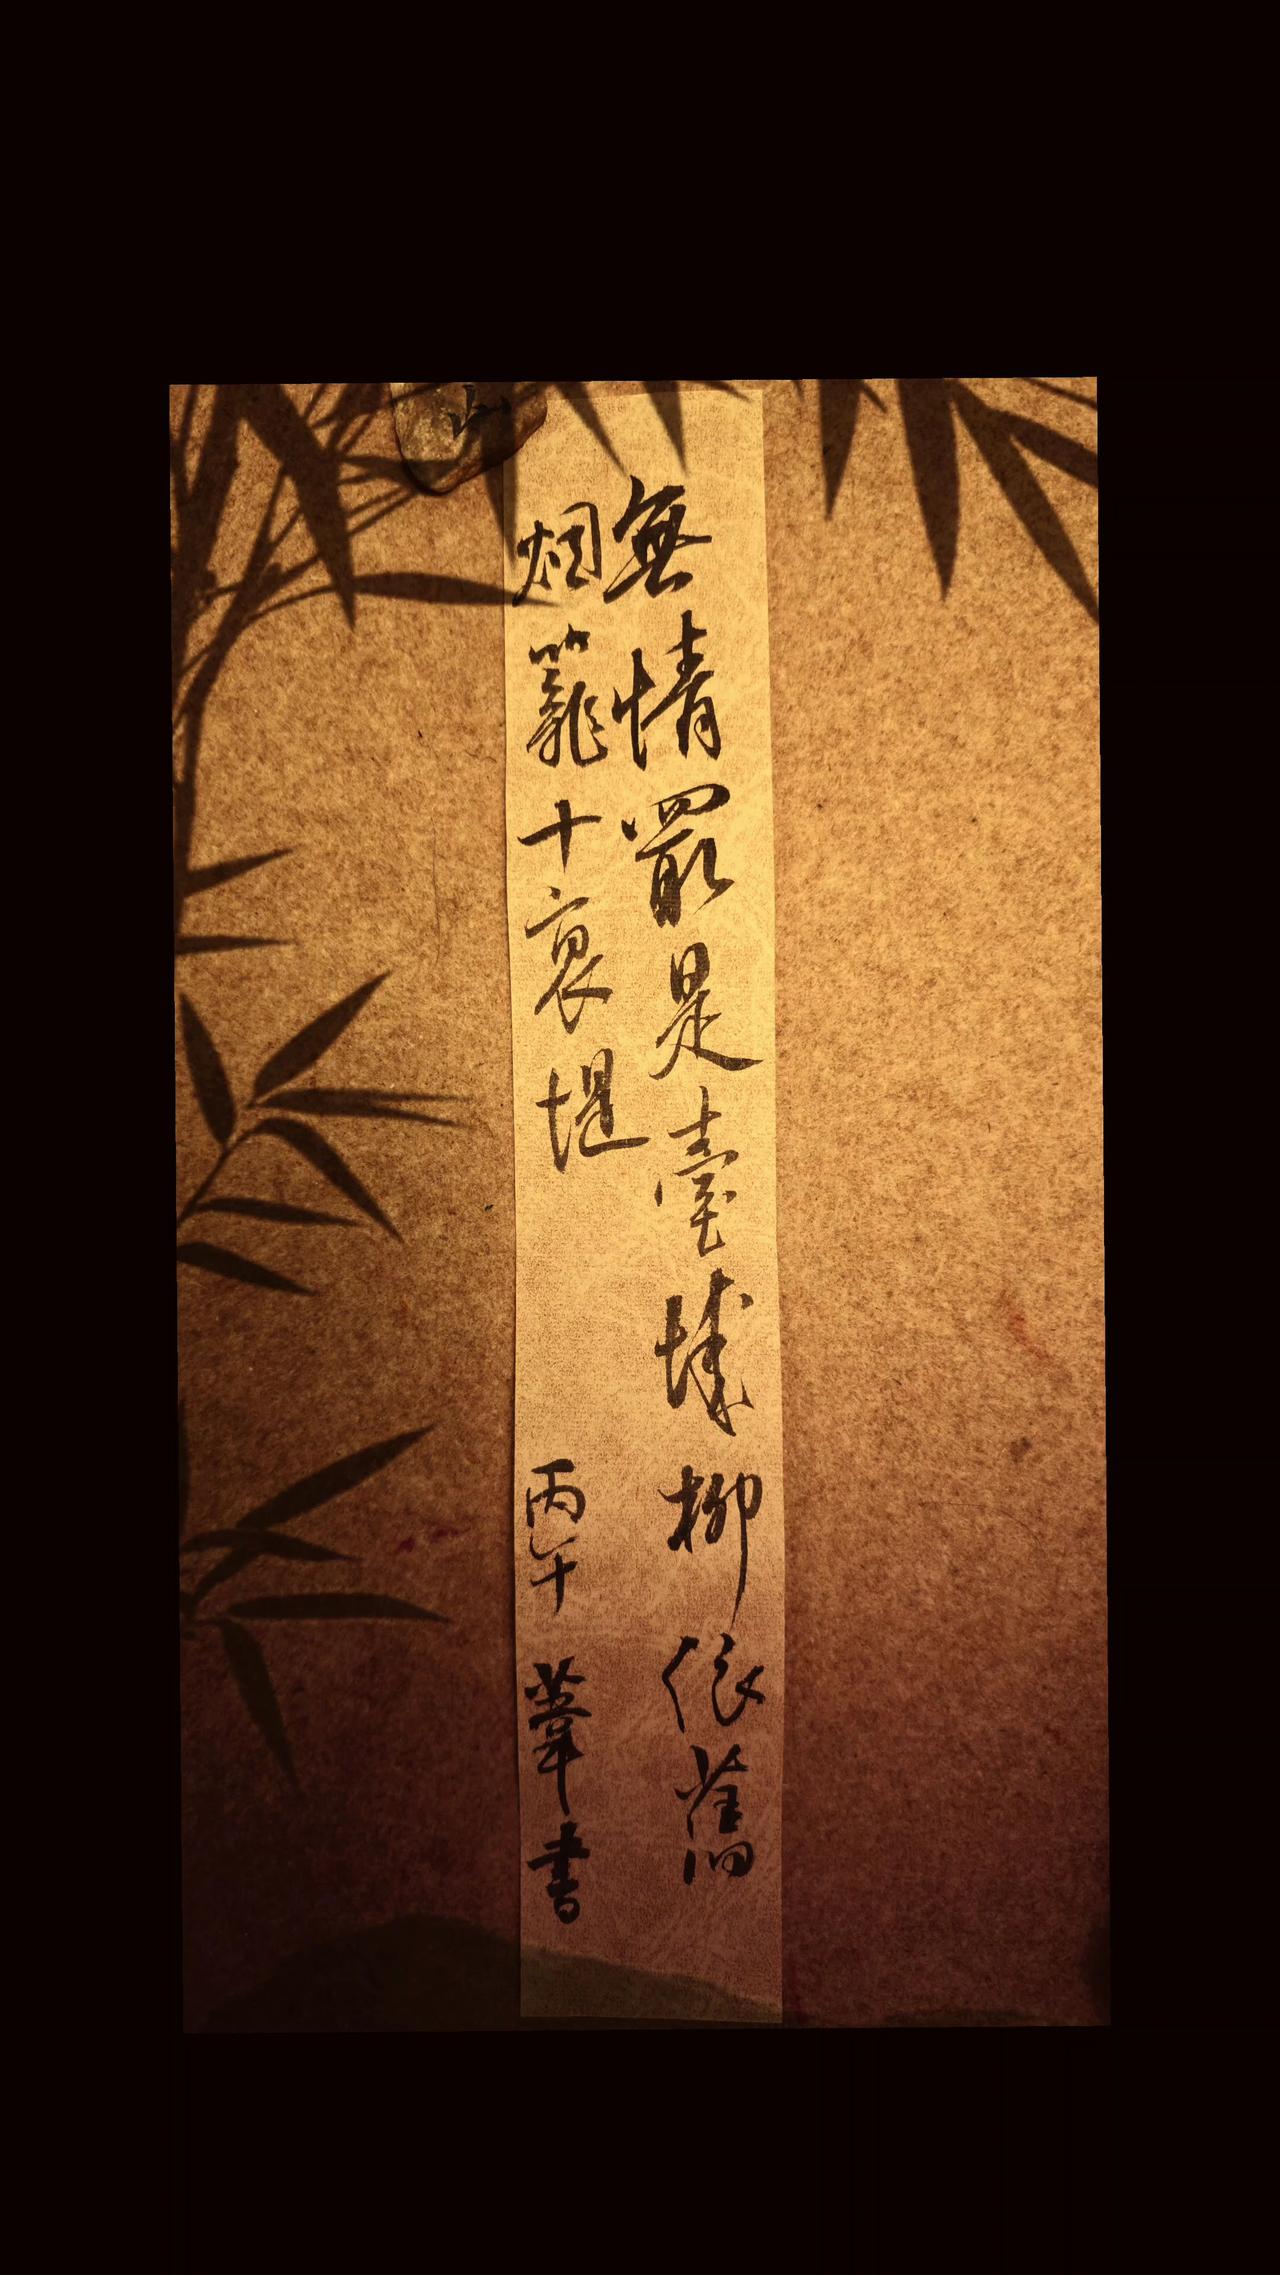 無情最是臺城柳依舊
烟籠十裏堤
丙午 葦書
山